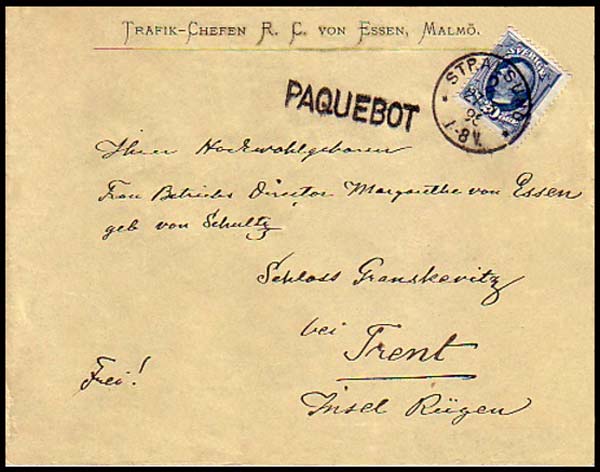 TRAFIK-CHEFEN R. C. VON ESSEN, MALMÖ.
SVERIGE
STRALSUND
1-8V.
PAQUEBOT
Ihrer Hochwohlgeboren
Frau Betriebs Director Margarethe von Essen
geb von Schultz
Schloss Granskevitz
bei
Trent
Frei!
Insel Rügen